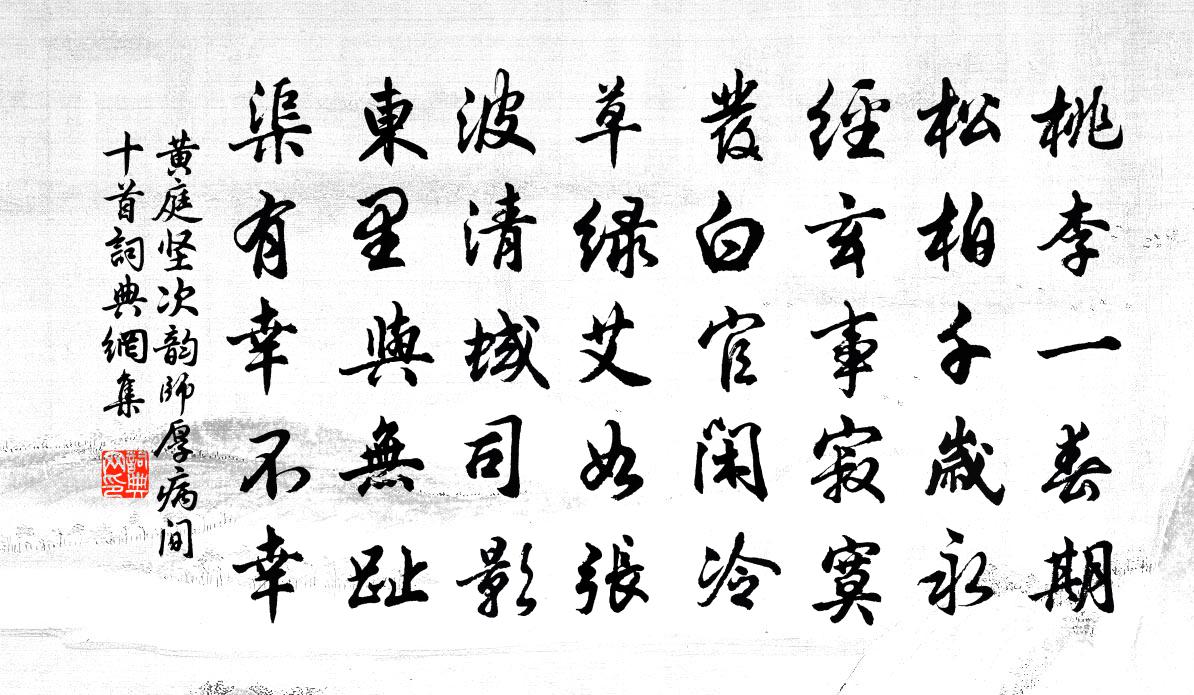 桃李一春期
松柏千歲永
經玄事寂寞
發白官閑冷
草綠艾如張
波清蜮司影
東里與無趾
渠有幸不幸
黄庭坚次韵師厚病间
十首詞典網集
詞典
网印